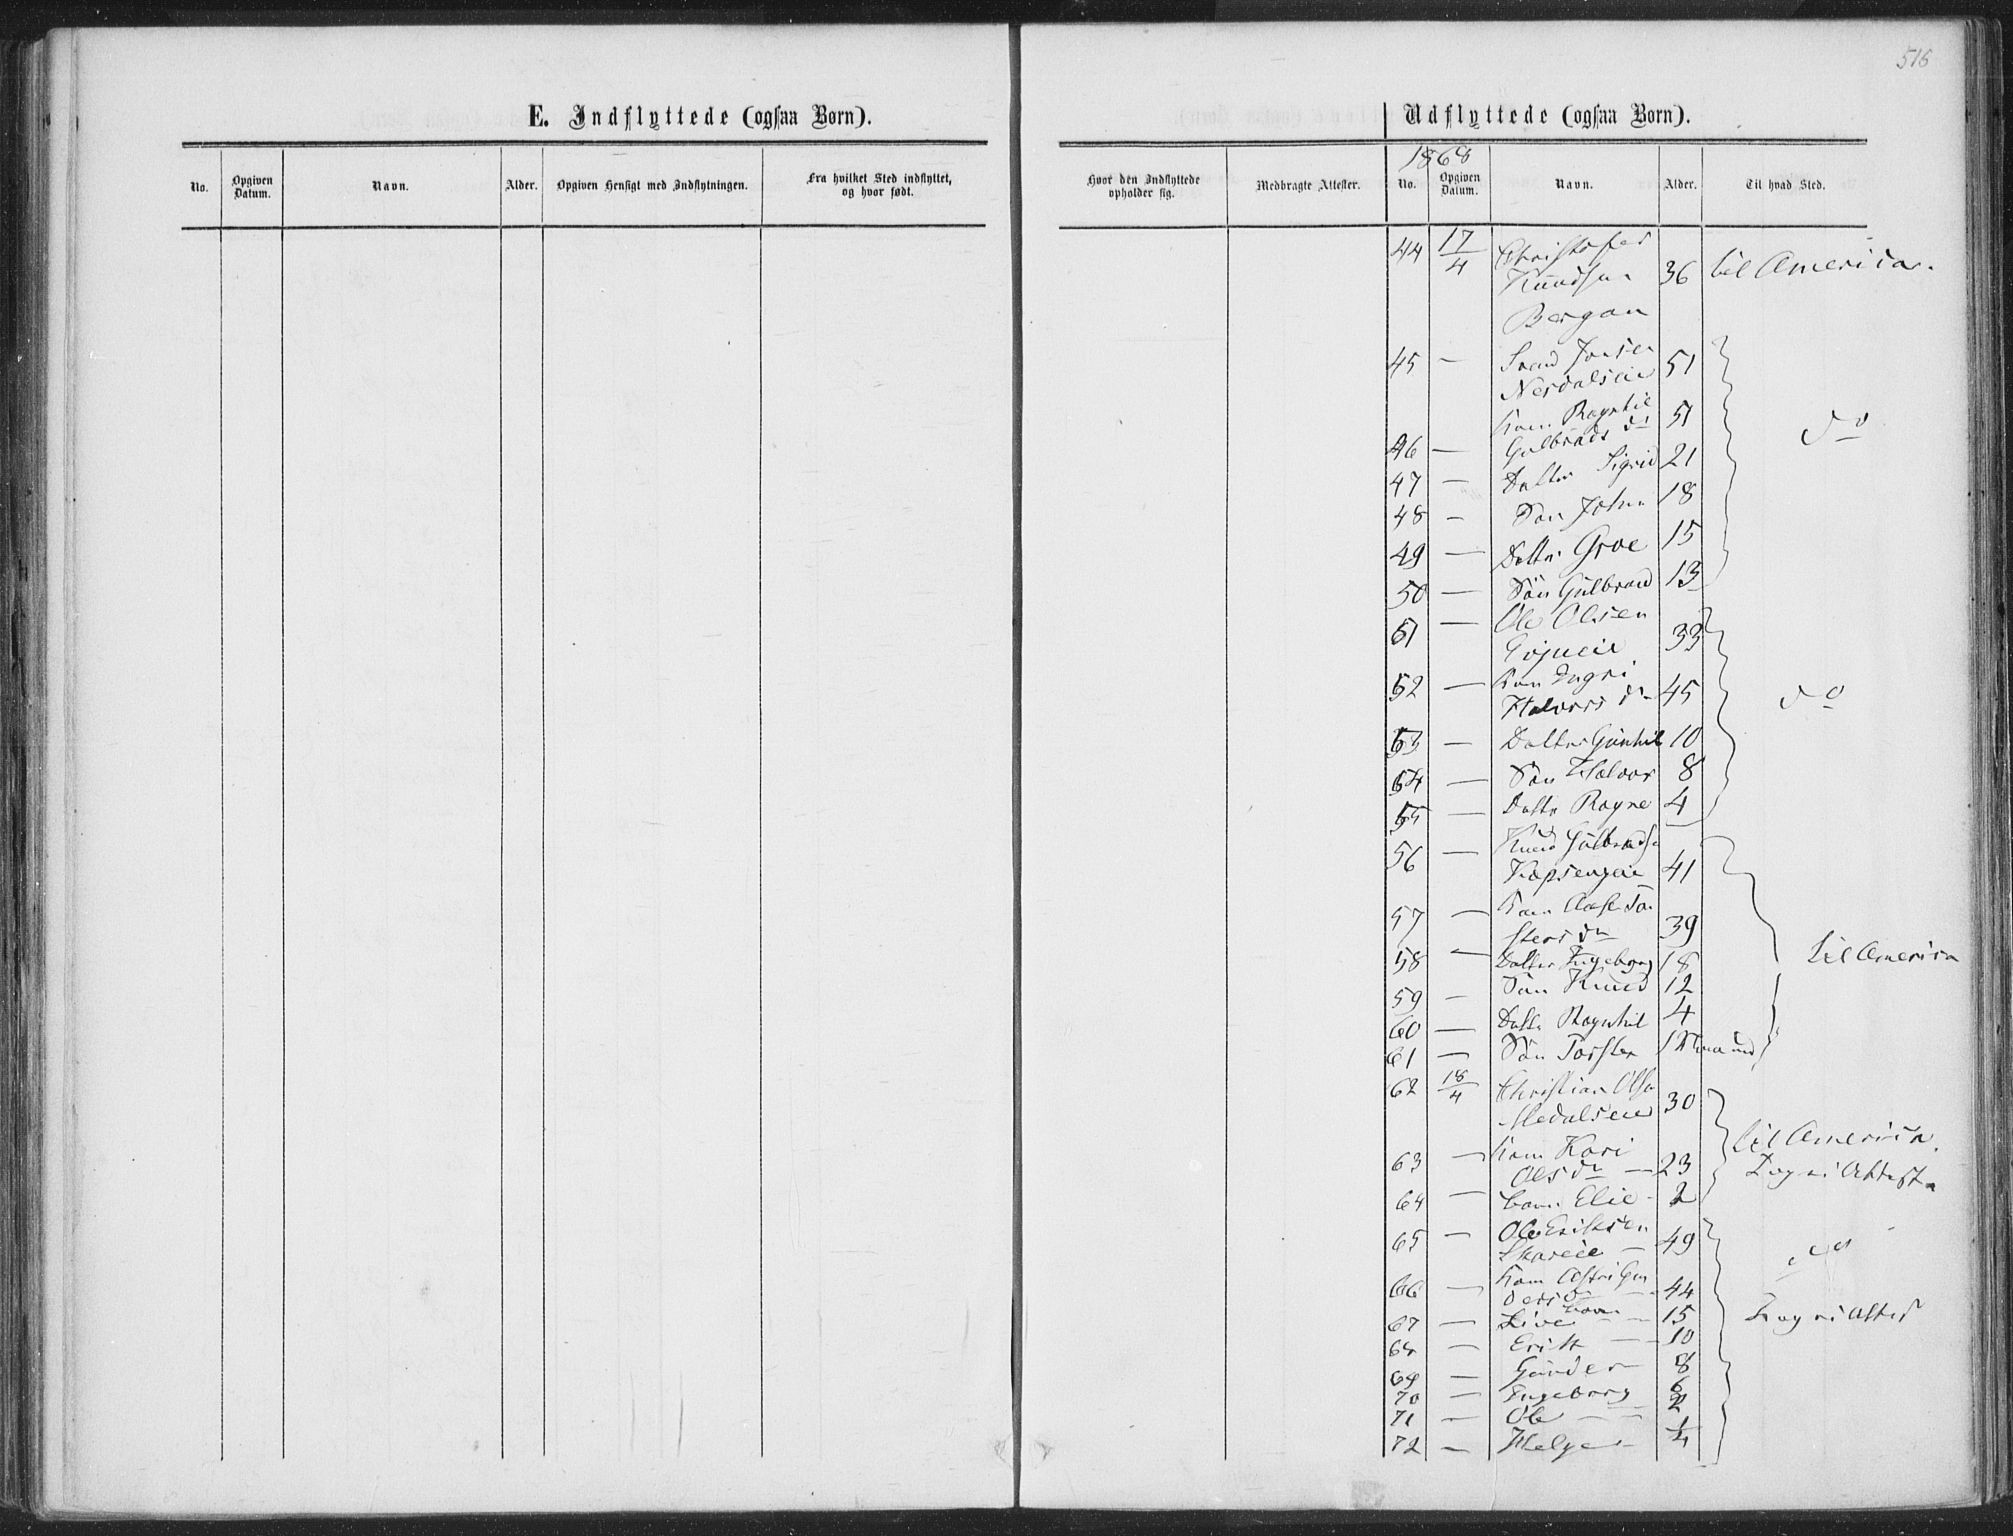 516
E. Indflyttede (ogsaa Børn).
Udflyttede (ogsaa Børn).
No.
Opgiven Datum.
Navn.
Alder.
Opgiven Hensigt med Indflytningen.
Fra hvilket Sted indflyttet, og hvor født.
Hvor den Indflyttede opholder sig.
Medbragte Attester.
1868
No.
Opgiven Datum.
Navn.
Alder.
Til hvad Sted.
44 17/4 Christofer
Knudsen 36 til America.
Bergan
45 — Svend Jonsen
Nerdalseie 51
Kone Ragnhil 51 do
46 — Gulbrads dr
47 — Datter Sigrid 21
48 — Søn John 18
49 — Dattr Groe 15
50 — Søn Gulbrand 13
51 — Ole Olsen
33
52 — Kone Ingri
Halvors dr 45 do
53 — Datter Gunhil 10
54 — Søn Halvor 8
55 — Dattr Ragne 4
56 — Knud Gulbrands
41
57 — Kone Aase Tor
stens dr 39
58 — Datter Ingeborg 18 til America
59 — Søn Knud 12
60 — Dattr Ragnhil 4
61 — Søn Torsten
62 18/4 Christian Ols
30
63 — Kone Kari til America.
Ols dr — 23
64 — barn Elie - 2
65 — Ole Eriksen
— 49 do
66 — Kone Astri Gun
ders dr — 44
67 — Live — 15
68 — Erik — 10
69 — Gunder 8
70 — Ingeborg 6
71 — Ole — 2
72 — Helge — 1/4